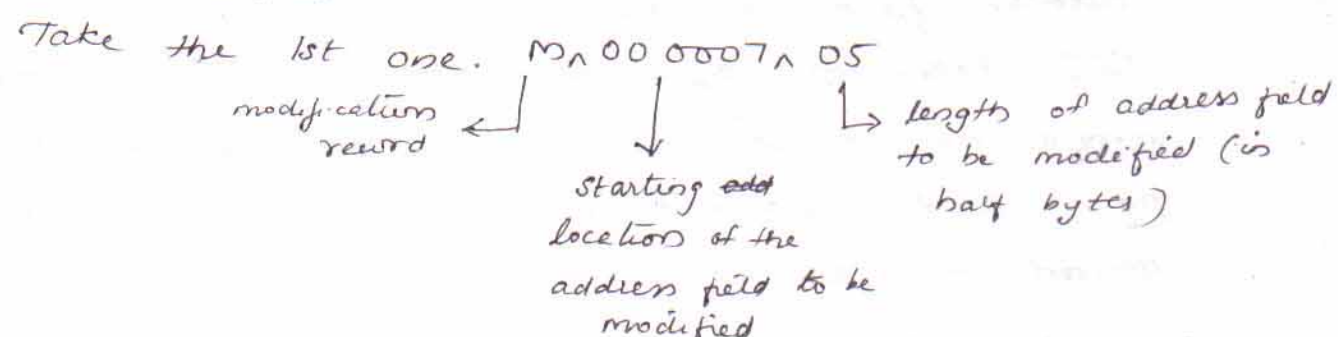 Take the 1st one. M^ 00 0007^ 05
modification
record
starting
location of the
address field to be
modified
length of address field
to be modified (in
half bytes)